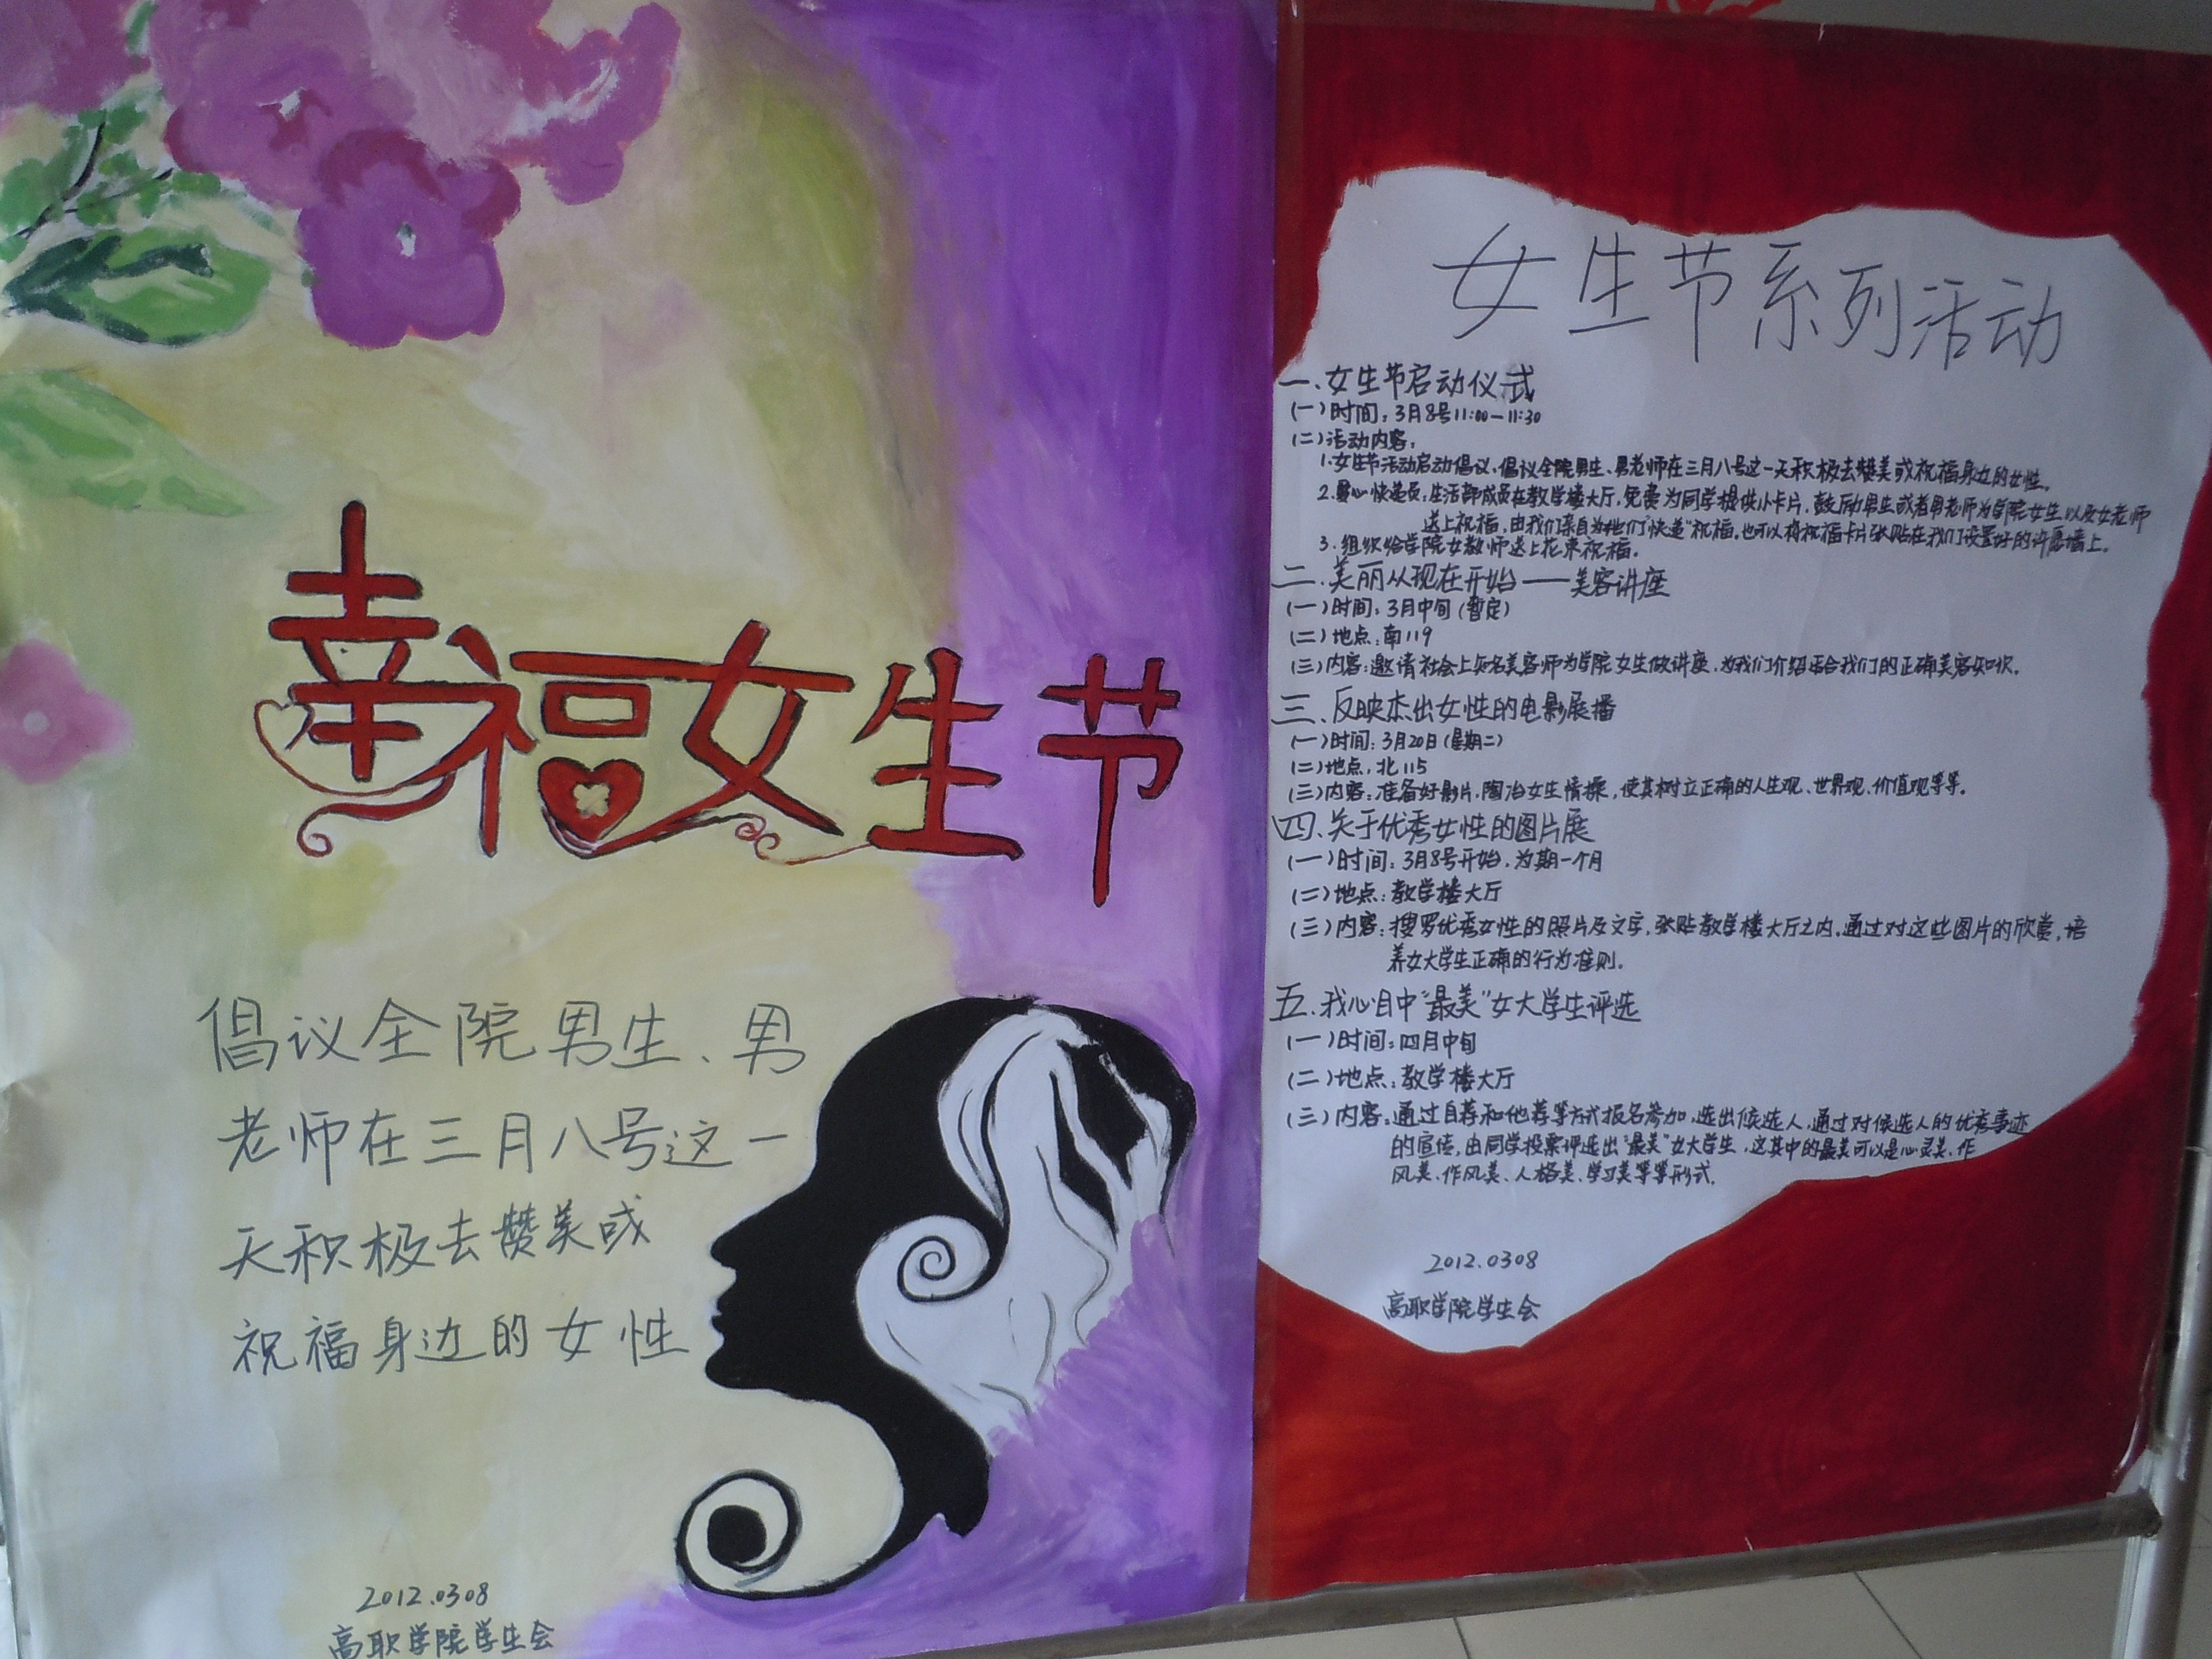 幸福女生节
倡议全院男生、男
老师在三月八号这一
天积极去赞美或
祝福身边的女性
2012.0308
高职学院学生会
女生节系列活动
一、女生节启动仪式
(一)时间:3月8号11:00—11:30
(二)活动内容:
1.女生节活动启动倡议,倡议全院男生、男老师在三月八号这一天积极去赞美或祝福身边的女性。
2.爱心快递员:生活部成员在教学楼大厅,免费为同学提供小卡片,鼓励男生或者男老师为学院女生以及女老师
送上祝福,由我们亲自为他们“快递”祝福,也可以将祝福卡片张贴在我们设置好的许愿墙上。
3.组织给学院女教师送上花束祝福。
二.美丽从现在开始——美容讲座
(一)时间:3月中旬(暂定)
(二)地点:南119
(三)内容:邀请社会上知名美容师为学院女生做讲座,为我们介绍适合我们的正确美容知识。
三、反映杰出女性的电影展播
(一)时间:3月20日(星期二)
(二)地点:北115
(三)内容:准备好影片,陶冶女生情操,使其树立正确的人生观、世界观、价值观等等。
四、关于优秀女性的图片展
(一)时间:3月8号开始,为期一个月
(二)地点:教学楼大厅
(三)内容:搜罗优秀女性的照片及文字,张贴教学楼大厅之内,通过对这些图片的欣赏,培
养女大学生正确的行为准则。
五.我心目中“最美”女大学生评选
(一)时间:四月中旬
(二)地点:教学楼大厅
(三)内容:通过自荐和他荐等方式报名参加,选出候选人,通过对候选人的优秀事迹
的宣传,由同学投票评选出“最美”女大学生,这其中的最美可以是心灵美、作
风美、作风美、人格美、学习美等等形式.
2012.0308
高职学院学生会